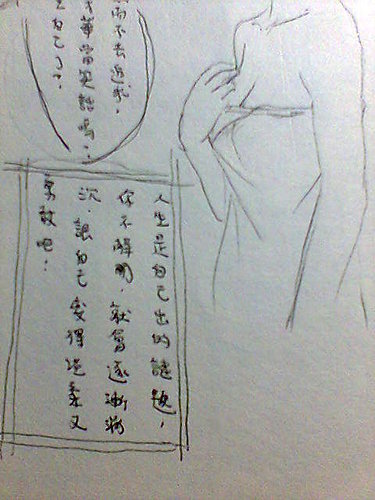 而不去追求,
才華當笑話嗎?
自己了?
人生是自己出的謎題,
你不解開,就會逐漸
次.讓自己變得溫柔又
勇敢吧!